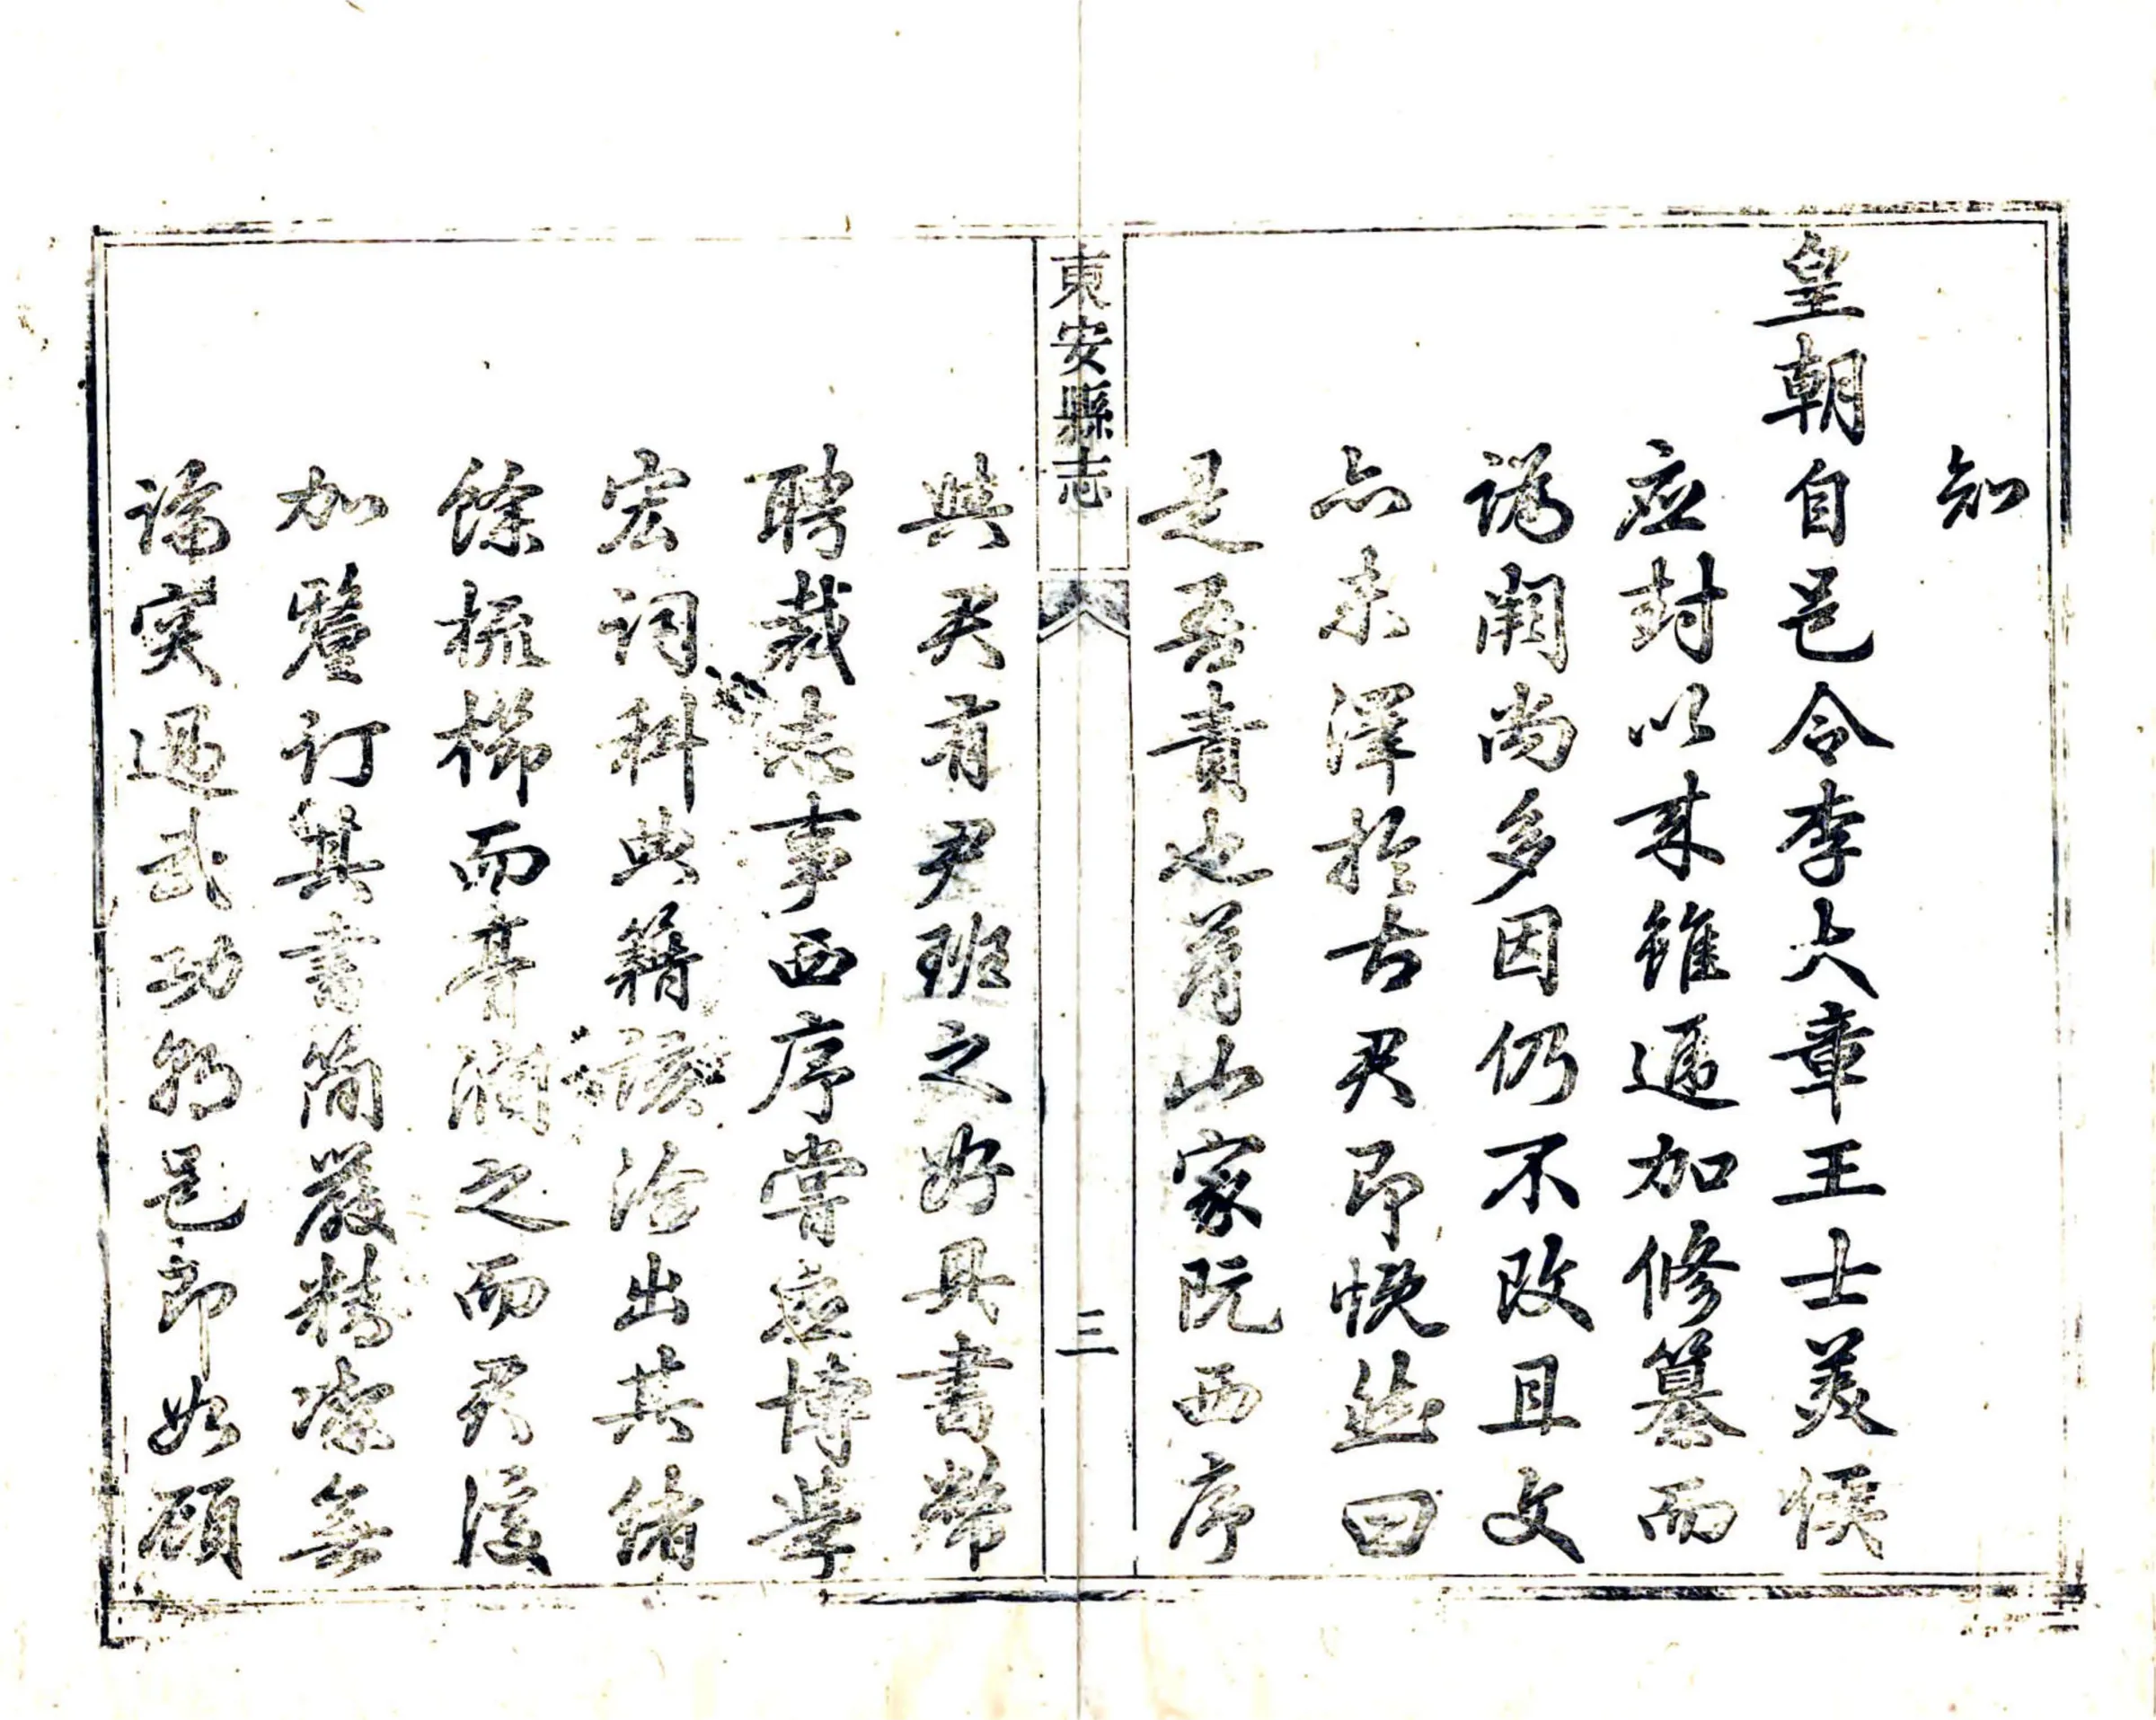 知
皇朝自邑令李大章王士美侯
应封以來雖遞加修纂而
譌闕尚多因仍不改且文
亦未澤於古君即慨然曰
是吾責也蕭山家阮西序
東安縣志
三
與君有尹班之好具書幣
聘裁志事西序嘗應博學
宏詞科典籍該洽出其緒
餘梳櫛而膏潤之而君復
加釐訂其書簡嚴精潔無
論突過武功朝邑即如顧